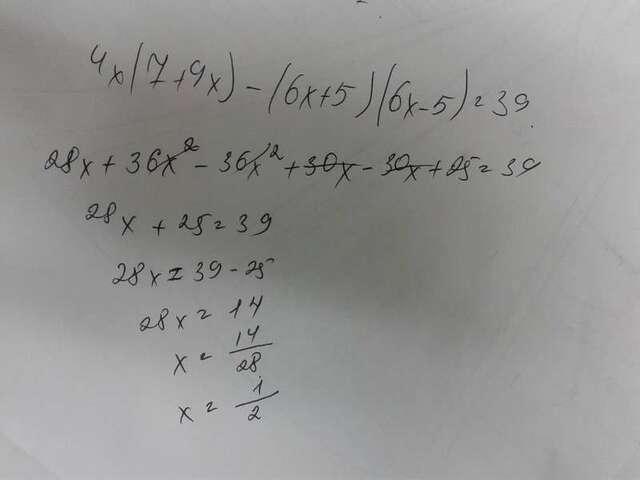 4x(7+9x)-(6x+5)(6x-5)=39
28x+36x²-36x²+30x-30x+25=39
28x+25=39
28x=39-25
28x=14
x=14/28
x=1/2